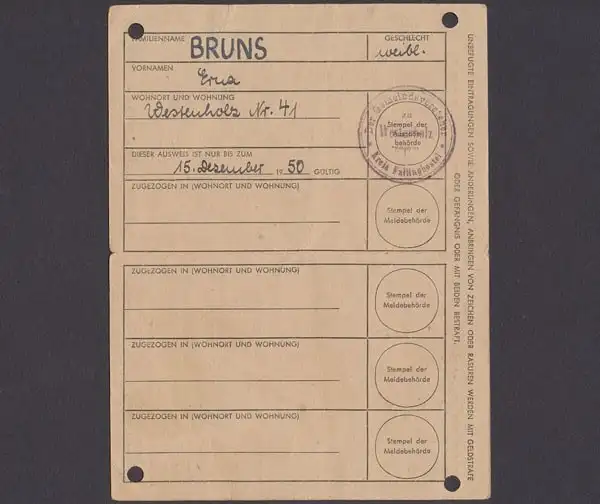 FAMILIENNAME
BRUNS
GESCHLECHT
weibl.
VORNAMEN
Erna
WOHNORT UND WOHNUNG
Westenholz Nr. 41
Der Gemeindevorsteher
zu
Westenholz
Kreis Fallingbostel
Stempel der
behörde
DIESER AUSWEIS IST NUR BIS ZUM
15. Dezember 19 50 GÜLTIG
ZUGEZOGEN IN (WOHNORT UND WOHNUNG)
Stempel der
Meldebehörde
ZUGEZOGEN IN (WOHNORT UND WOHNUNG)
Stempel der
Meldebehörde
ZUGEZOGEN IN (WOHNORT UND WOHNUNG)
Stempel der
Meldebehörde
ZUGEZOGEN IN (WOHNORT UND WOHNUNG)
Stempel der
Meldebehörde
UNBEFUGTE EINTRAGUNGEN SOWIE ÄNDERUNGEN, ANBRINGEN VON ZEICHEN ODER RASUREN WERDEN MIT GELDSTRAFE
ODER GEFÄNGNIS ODER MIT BEIDEN BESTRAFT.